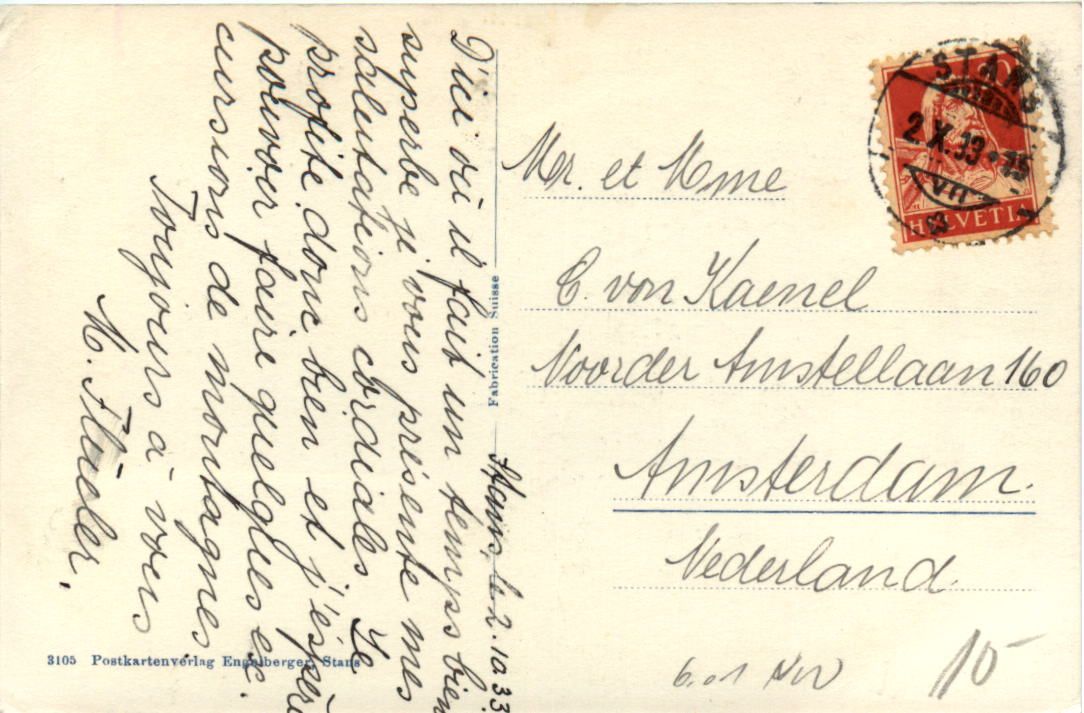 Stans, le 2. 10 33.
D'ici où il fait un temps bien
superbe je vous présente mes
salutations cordiales. Je
profite donc bien et j'espère
pouvoir faire quelques ex-
cursions de montagnes.
Toujours à vous
Fabrication Suisse
3105 Postkartenverlag Engelberger, Stans
20
HELVETIA
STANS
2.X.33
VII
Mr. et Mme
C. von Kaenel
Noorder Amstellaan 160
Amsterdam.
Nederland.
10-